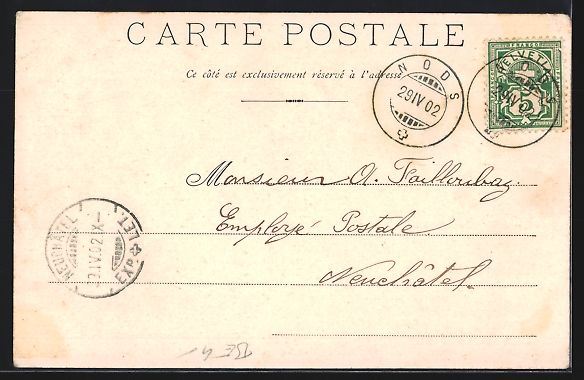 CARTE POSTALE
Ce côté est exclusivement réservé à l'adresse.
NODS
29IV 02
FRANCO
HELVETIA
5
NODS
Monsieur A. Failloubaz.
Employé Postale
Neuchâtel.
NEUCHÂTEL
EXP. LET.
IV.02 X